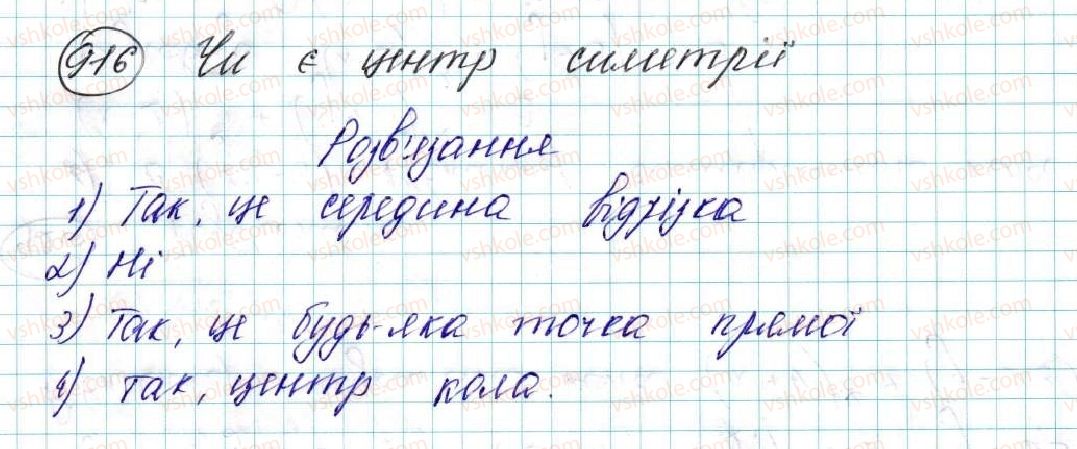 916 Чи є центр симетрії
Розв'язання
1) Так, це середина відрізка
2) Ні
3) Так, це будь-яка точка прямої
4) Так, центр кола.